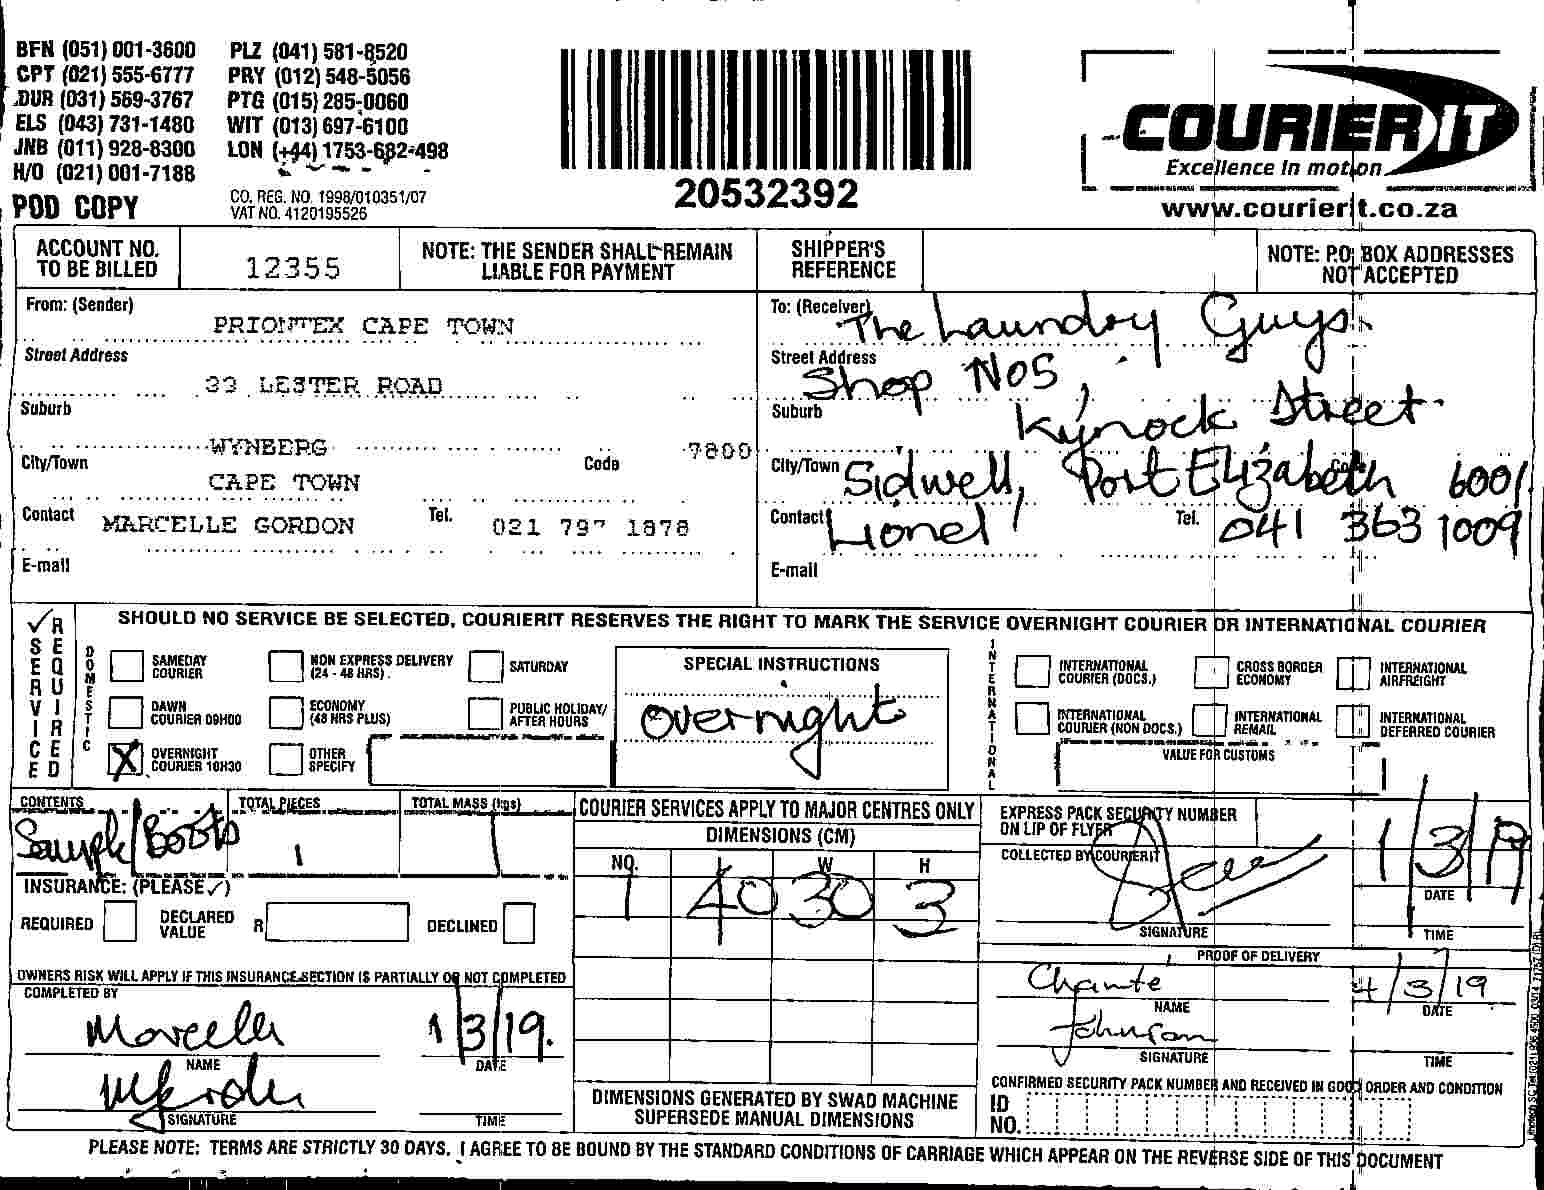 BFN (051) 001-3600 PLZ (041) 581-8520
CPT (021) 555-6777 PRY (012) 548-5056
DUR (031) 569-3767 PTG (015) 285-0060
ELS (043) 731-1480 WIT (013) 697-6100
JNB (011) 928-8300 LON (+44) 1753-682-498
H/O (021) 001-7188
POD COPY
CO. REG. NO. 1998/010351/07
VAT NO. 4120195526
20532392
COURIER IT
Excellence in motion
www.courierit.co.za
ACCOUNT NO. TO BE BILLED 12355
NOTE: THE SENDER SHALL REMAIN LIABLE FOR PAYMENT
SHIPPER'S REFERENCE
NOTE: P.O. BOX ADDRESSES NOT ACCEPTED
From: (Sender) PRIONTEX CAPE TOWN
Street Address 33 LESTER ROAD
Suburb WYNBERG
City/Town CAPE TOWN Code 7800
Contact MARCELLE GORDON Tel. 021 797 1878
E-mail
To: (Receiver) The Laundry Guys
Street Address Shop No5,
Suburb Kynock Street
City/Town Sidwell, Port Elizabeth 6001
Contact Lionel Tel. 041 363 1009
E-mail
SERVICE REQUIRED
SHOULD NO SERVICE BE SELECTED, COURIERIT RESERVES THE RIGHT TO MARK THE SERVICE OVERNIGHT COURIER OR INTERNATIONAL COURIER
DOMESTIC
SAMEDAY COURIER
NON EXPRESS DELIVERY (24 - 48 HRS)
SATURDAY
DAWN COURIER 09H00
ECONOMY (48 HRS PLUS)
PUBLIC HOLIDAY/ AFTER HOURS
X OVERNIGHT COURIER 10H30
OTHER SPECIFY
SPECIAL INSTRUCTIONS
Overnight
INTERNATIONAL
INTERNATIONAL COURIER (DOCS.)
CROSS BORDER ECONOMY
INTERNATIONAL AIRFREIGHT
INTERNATIONAL COURIER (NON DOCS.)
INTERNATIONAL REMAIL
INTERNATIONAL DEFERRED COURIER
VALUE FOR CUSTOMS
CONTENTS Sample/Boots
TOTAL PIECES 1
TOTAL MASS (kgs) 1
INSURANCE: (PLEASE ✓)
REQUIRED
DECLARED VALUE R
DECLINED
OWNERS RISK WILL APPLY IF THIS INSURANCE SECTION IS PARTIALLY OR NOT COMPLETED
COMPLETED BY
Marcelle 1/3/19.
NAME DATE
SIGNATURE TIME
COURIER SERVICES APPLY TO MAJOR CENTRES ONLY
DIMENSIONS (CM)
NO. L W H
1 40 30 3
DIMENSIONS GENERATED BY SWAD MACHINE SUPERSEDE MANUAL DIMENSIONS
EXPRESS PACK SECURITY NUMBER ON LIP OF FLYER
COLLECTED BY COURIERIT
1/3/19
DATE
SIGNATURE TIME
PROOF OF DELIVERY
Chanté 4/3/19
NAME DATE
Johnson
SIGNATURE TIME
CONFIRMED SECURITY PACK NUMBER AND RECEIVED IN GOOD ORDER AND CONDITION
ID NO.
PLEASE NOTE: TERMS ARE STRICTLY 30 DAYS. I AGREE TO BE BOUND BY THE STANDARD CONDITIONS OF CARRIAGE WHICH APPEAR ON THE REVERSE SIDE OF THIS DOCUMENT